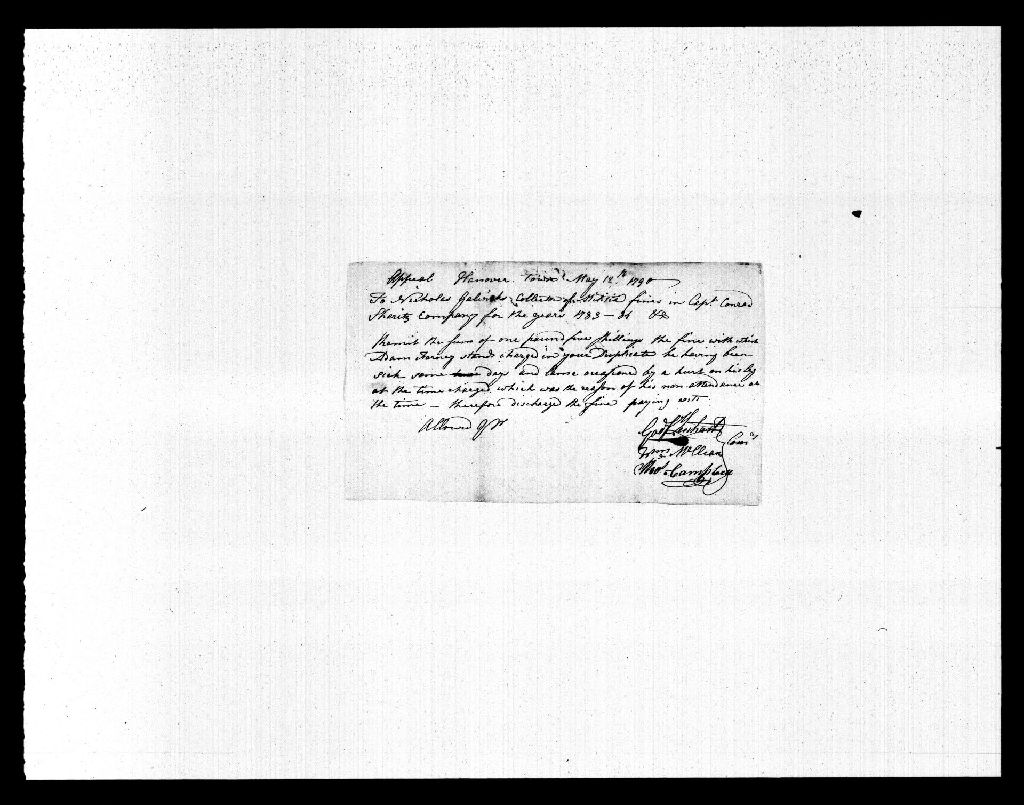 Appeal Hanover Town May 12th 1790
To Nicholas Collector of fines in Capt Conrad
Sherits Company for the years 1783 - 84 &c
Remit the fine of one pound five shillings the fine with which
Adam Forney stands charged in your Duplicate he having been
sick some days and lame occasioned by a hurt on his leg
at the time charged which was the reason of his non attendance at
the time - therefore discharge the fine paying costs
Allowed
Wm McClean Comrs
Thos Campbell